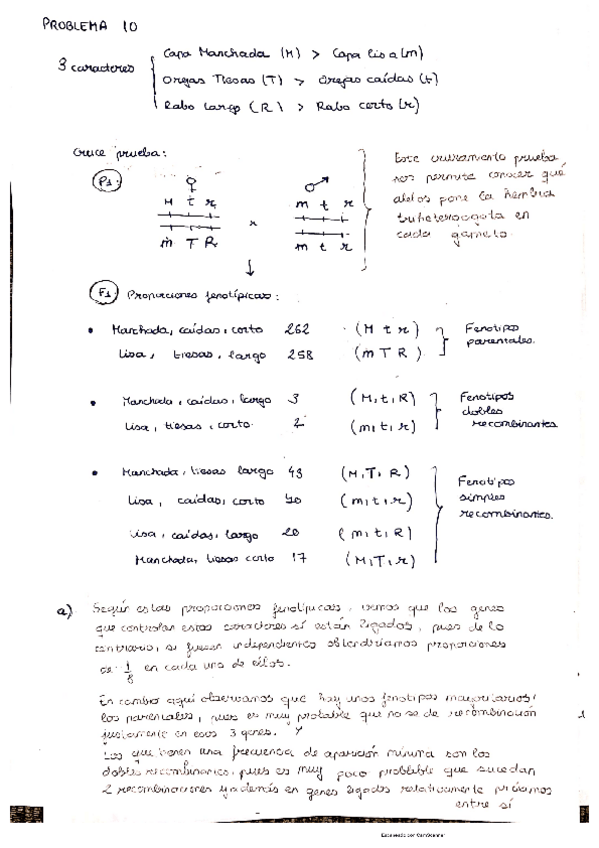 PROBLEMA 10
3 caracteres
Capa Manchada (M) > Capa lisa (m)
Orejas Tiesas (T) > Orejas caídas (t)
Rabo largo (R) > Rabo corto (r)
Cruce prueba:
P1. ♀ ♂
M t r m t r
x
m T R m t r
Este cruzamiento prueba,
nos permite conocer qué
alelos pone la hembra
triheterocigota en
cada gameto.
F1 Proporciones fenotípicas:
• Manchada, caídas, corto 262 (M t r)
Lisa, tiesas, largo 258 (m T R)
Fenotipos
parentales.
• Manchada, caídas, largo 3 (M, t, R)
Lisa, tiesas, corto. 2 (m, t, r)
Fenotipos
dobles
recombinantes.
• Manchada, tiesas largo 43 (M, T, R)
Lisa, caídas, corto 40 (m, t, r)
Lisa, caídas, largo 20 (m, t, R)
Manchada, tiesas corto 17 (M, T, r)
Fenotipos
simples
recombinantes.
a) Según estas proporciones fenotípicas, vemos que los genes
que controlan estos caracteres sí están ligados, pues de lo
contrario, si fuesen independientes obtendríamos proporciones
de 1/8 en cada uno de ellos.
En cambio aquí observamos que hay unos fenotipos mayoritarios:
los parentales, pues es muy probable que no se de recombinación
justamente en esos 3 genes. Y
Los que tienen una frecuencia de aparición mínima son los
dobles recombinantes, pues es muy poco probable que sucedan
2 recombinaciones y además en genes ligados relativamente próximos
entre sí
Escaneado con CamScanner